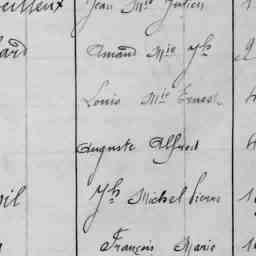 Jean Mie Julien
Amand Mie Jh
Louis Mie Ernest
Auguste Alfred
Jh Michel Pierre
François Marie